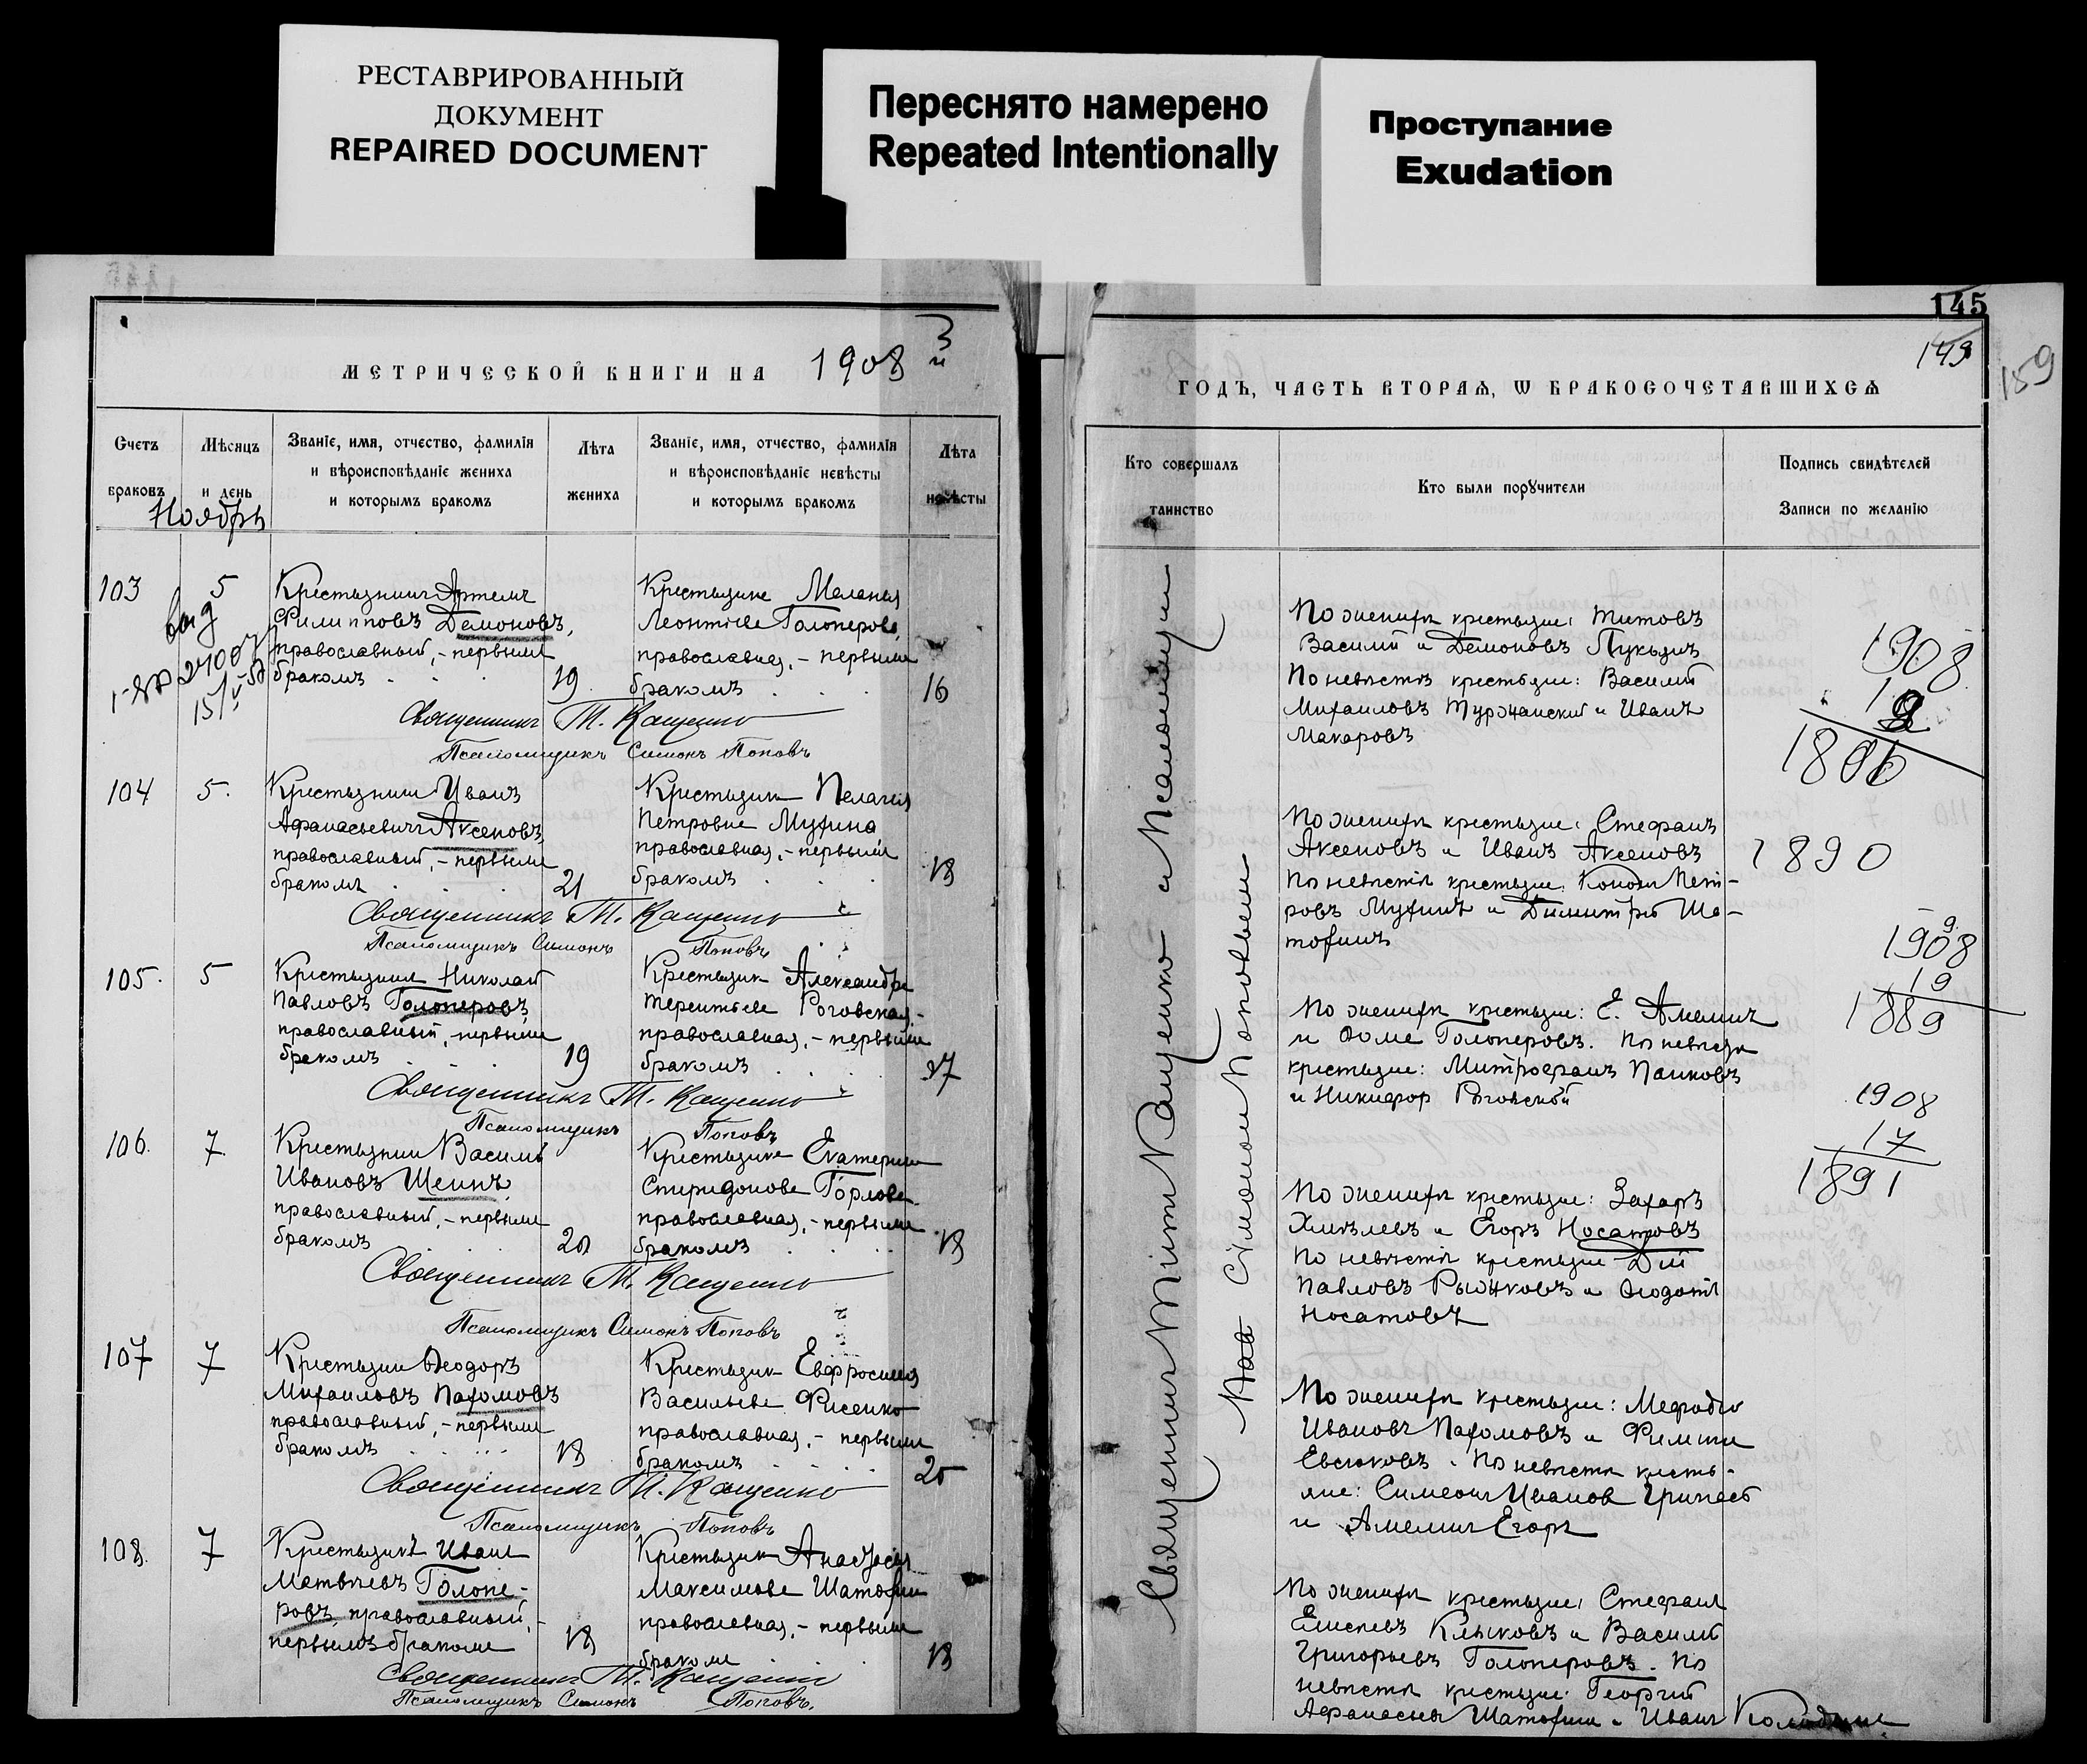 РЕСТАВРИРОВАННЫЙ
ДОКУМЕНТ
REPAIRED DOCUMENT
Переснято намерено
Repeated Intentionally
Проступание
Exudation
МЕТРИЧЕСКОЙ КНИГИ НА 1908
Счетъ браковъ
Мѣсяцъ и день
Званіе, имя, отчество, фамилія
и вѣроисповѣданіе жениха
и которымъ бракомъ
Лѣта
жениха
Званіе, имя, отчество, фамилія
и вѣроисповѣданіе невѣсты
и которымъ бракомъ
Лѣта
невѣсты
Ноябрь
103 5
Крестьянинъ Артемъ
Филипповъ Демоновъ,
православный, - первымъ
бракомъ 19
Крестьянка Меланья
Леонтіева Голоперова,
православная, - первымъ
бракомъ 16
Священникъ Т. Кащенко
Псаломщикъ Симонъ Поповъ
104 5.
Крестьянинъ Иванъ
Афанасьевичъ Аксеновъ,
православный, - первымъ
бракомъ 21
Крестьянка Пелагея
Петровна Мухина
православная, - первымъ
бракомъ 18
Священникъ Т. Кащенко
Псаломщикъ Симонъ Поповъ
105. 5
Крестьянинъ Николай
Павловъ Голоперовъ,
православный, - первымъ
бракомъ 19
Крестьянка Александра
Терентьева Роговская,
православная, - первымъ
бракомъ 17
Священникъ Т. Кащенко
Псаломщикъ Поповъ
106. 7.
Крестьянинъ Василій
Ивановъ Шеинъ,
православный, - первымъ
бракомъ 20
Крестьянка Екатерина
Спиридонова Горлова
православная, - первымъ
бракомъ 18
Священникъ Т. Кащенко
Псаломщикъ Симонъ Поповъ
107 7
Крестьянинъ Ѳеодоръ
Михаиловъ Пахомовъ
православный, - первымъ
бракомъ 18
Крестьянка Евфросинія
Васильева Фисенко
православная, - первымъ
бракомъ
Священникъ Т. Кащенко
Псаломщикъ Поповъ
108. 7
Крестьянинъ Иванъ
Матвѣевъ Голопе-
ровъ православный, -
первымъ бракомъ 18
Крестьянка Анастасія
Максимова Шатохина
православная, - первымъ
бракомъ 18
Священникъ Т. Кащенко
Псаломщикъ Симонъ Поповъ.
145
149
159
ГОДЪ, ЧАСТЬ ВТОРАЯ, Ѡ БРАКОСОЧЕТАВШИХСЯ
Кто совершалъ
таинство
Кто были порꙋчители
Подпись свидѣтелей
Записи по желанію
Священникъ Титъ Кащенко и Псаломщикъ
Симонъ Поповъ
По женихѣ крестьяне: Титовъ
Василій и Демоновъ Лукьянъ
По невѣстѣ крестьяне: Василій
Михаиловъ Туржанскій и Иванъ
Макаровъ
1908
По женихѣ крестьяне: Стефанъ
Аксеновъ и Иванъ Аксеновъ
По невѣстѣ крестьяне: Кононъ Пет-
ровъ Мухинъ и Димитрій Ша-
тохинъ
1890
По женихѣ крестьяне: Е. Амелинъ
и Ѳома Голоперовъ. По невѣстѣ
крестьяне: Митрофанъ Панковъ
и Никифор Роговской
1908
19
1889
По женихѣ крестьяне: Захаръ
Хмѣлевъ и Егоръ Носатовъ
По невѣстѣ крестьяне Дій
Павловъ Рыжковъ и Ѳеодотъ
Носатовъ
1908
17
1891
По женихѣ крестьяне: Мефодій
Ивановъ Пахомовъ и Филиппъ
Евсюковъ. По невѣстѣ кресть-
яне: Симеонъ Иванов
и Амелинъ Егоръ
По женихѣ крестьяне: Стефанъ
Елисеевъ Клыковъ и Василій
Григорьевъ Голоперовъ. По
невѣстѣ крестьяне: Георгій
Афанасьевъ Шатохинъ и Иванъ